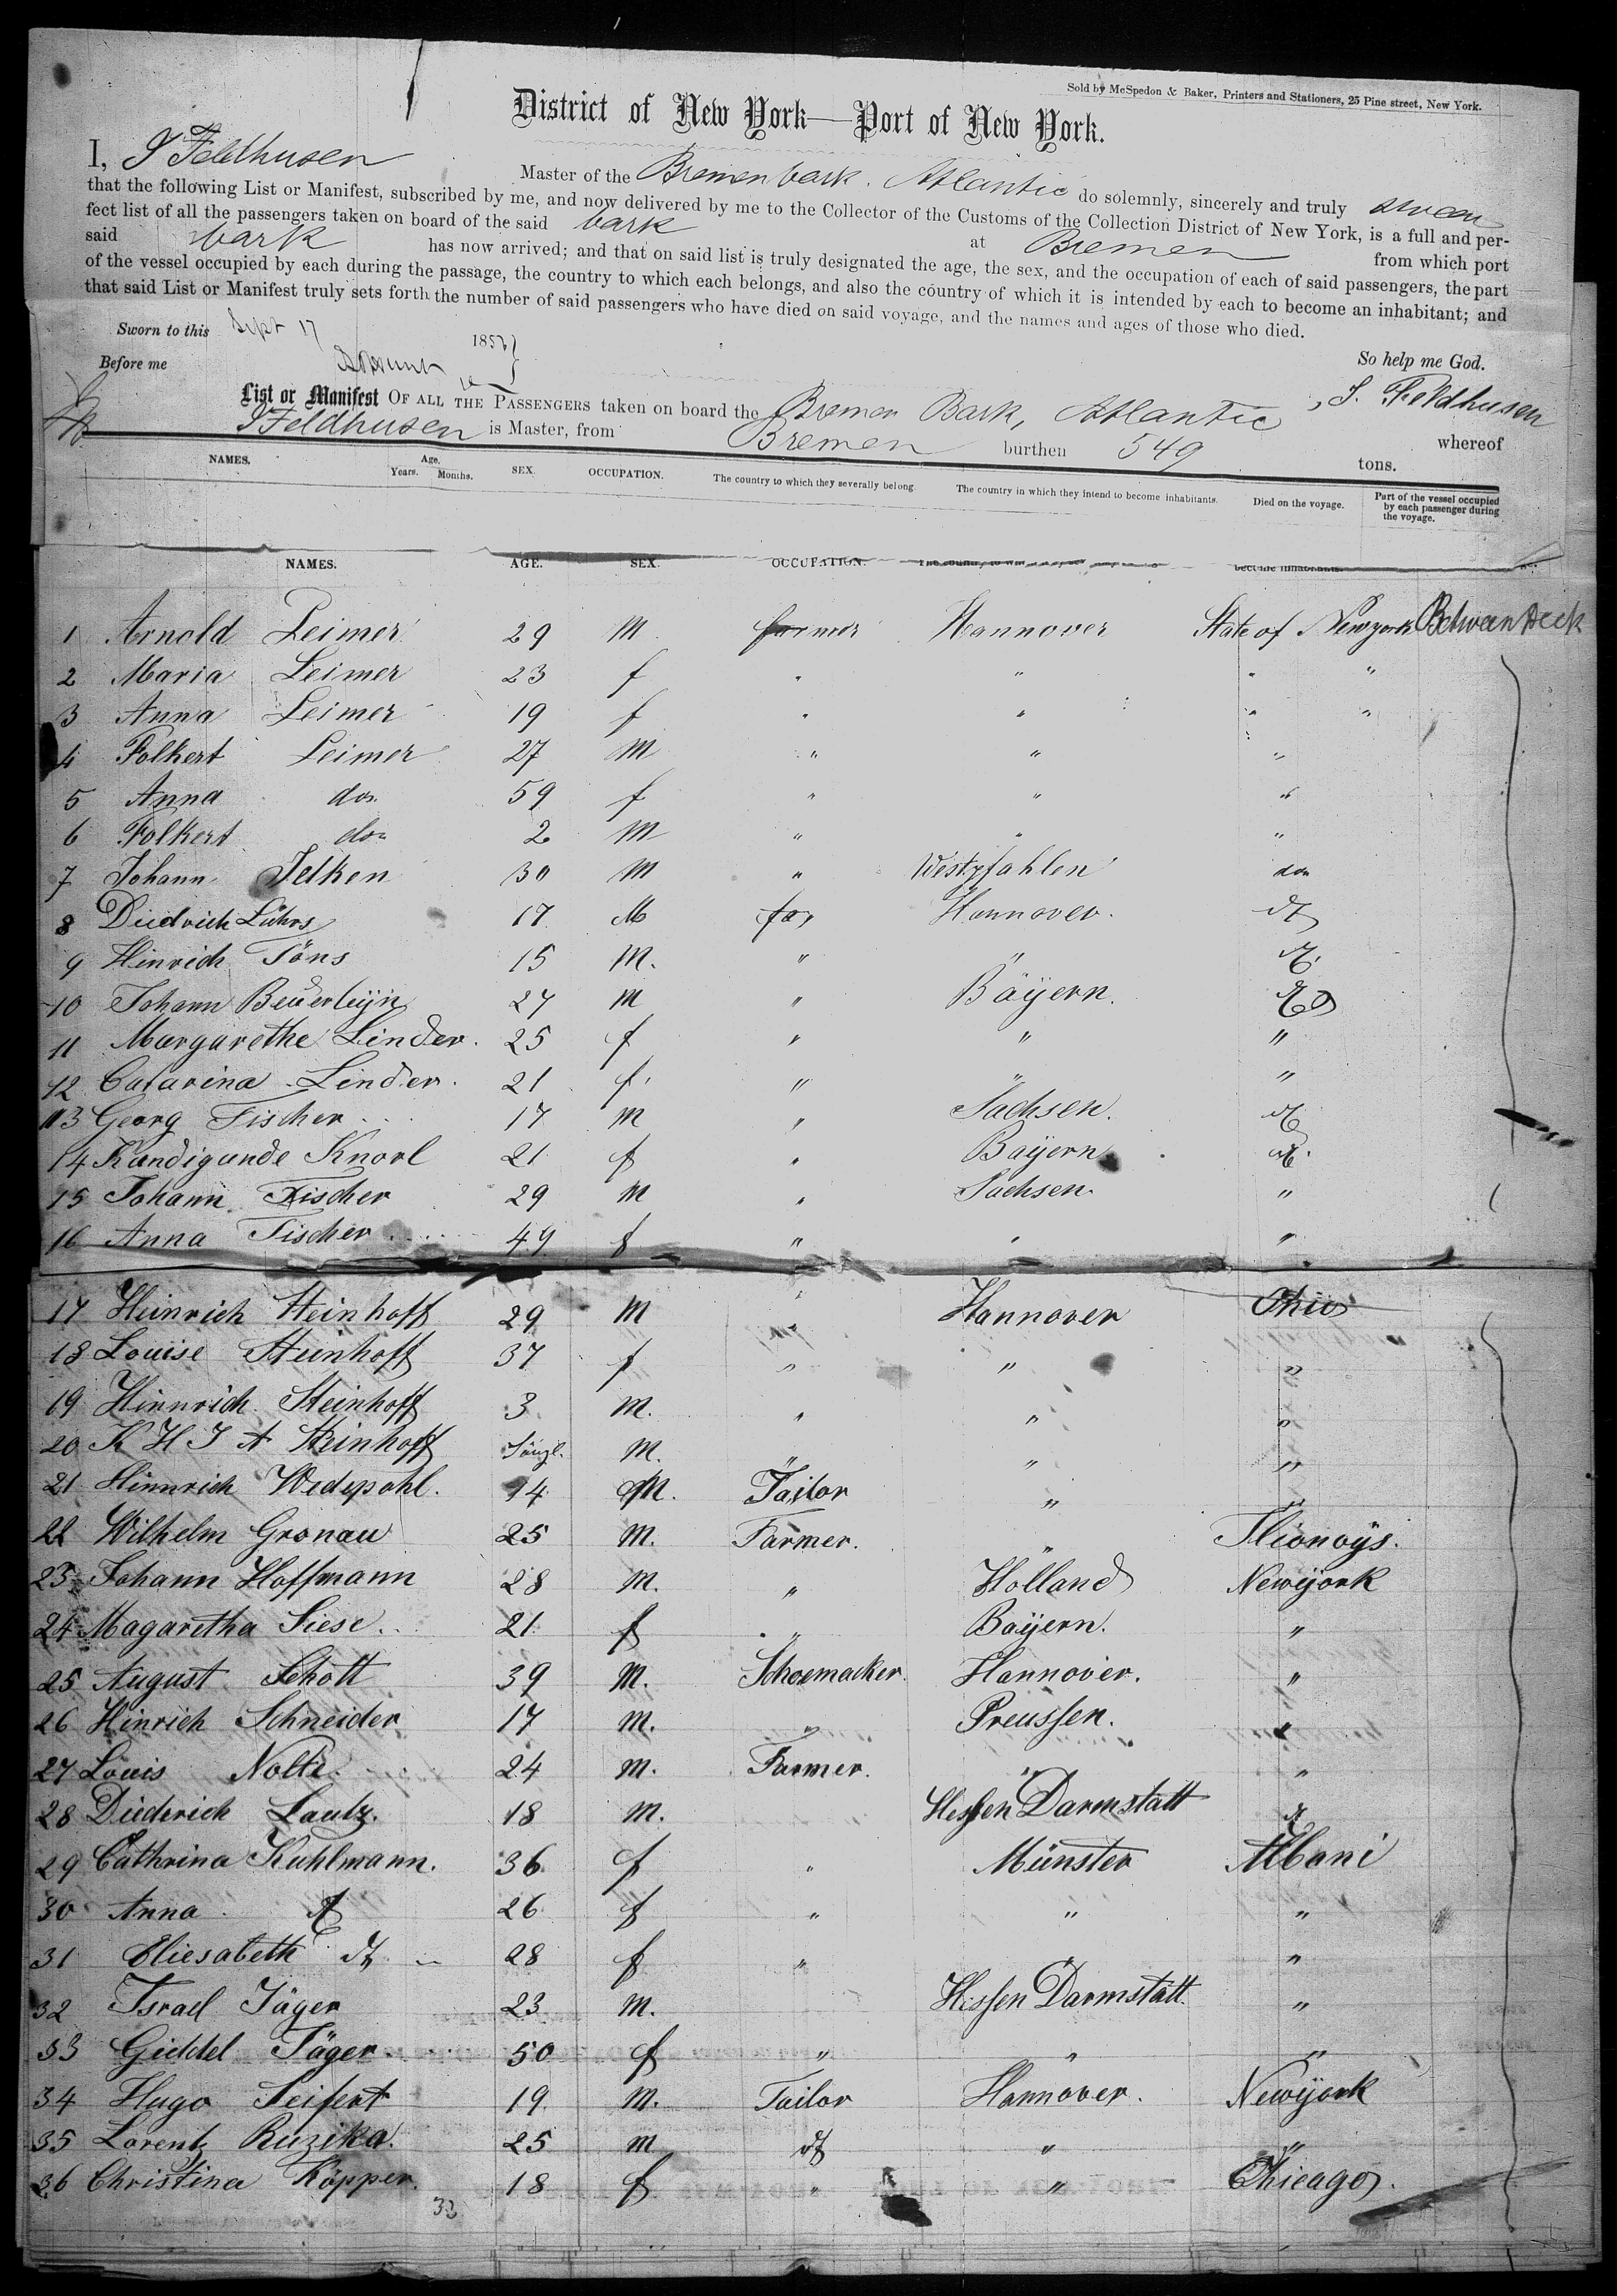 Sold by McSpedon & Baker, Printers and Stationers, 25 Pine street, New York.
District of New York—Port of New York.
I, J Feldhusen Master of the Bremen bark. Atlantic do solemnly, sincerely and truly swear
that the following List or Manifest, subscribed by me, and now delivered by me to the Collector of the Customs of the Collection District of New York, is a full and per-
fect list of all the passengers taken on board of the said bark at Bremen from which port
said bark has now arrived; and that on said list is truly designated the age, the sex, and the occupation of each of said passengers, the part
of the vessel occupied by each during the passage, the country to which each belongs, and also the country of which it is intended by each to become an inhabitant; and
that said List or Manifest truly sets forth the number of said passengers who have died on said voyage, and the names and ages of those who died.
Sworn to this Sept 17 185
So help me God.
Before me
J. Feldhusen
List or Manifest OF ALL THE PASSENGERS taken on board the Bremen Bark, Atlantic whereof
J Feldhusen is Master, from Bremen burthen 549 tons.
NAMES. Age. Years. Months. SEX. OCCUPATION. The country to which they severally belong. The country in which they intend to become inhabitants. Died on the voyage. Part of the vessel occupied by each passenger during the voyage.
NAMES. AGE. SEX. OCCUPATION. become inhabitants.
1 Arnold Leimer 29 M farmer Hannover State of Newyork Between Deck
2 Maria Leimer 23 f " " " "
3 Anna Leimer 19 f " " " "
4 Folkert Leimer 27 M " " "
5 Anna do. 59 f " " "
6 Folkert do 2 M " " "
7 Johann Jelken 30 M " Westpfahlen do
8 Diedrich Lührs 17 M far Hannover. dt
9 Hinrich Töns 15 M. " " dt.
10 Johann Beuerleijn 27 M " Bayern. dto
11 Margarethe Linder. 25 f " " "
12 Catarina Linder. 21 f. " " "
13 Georg Fischer 17 M " Sachsen. dt
14 Kundigunde Knorl 21 f " Bayern dt.
15 Johann Fischer 29 M " Sachsen. "
16 Anna Fischer 49 f " " "
17 Heinrich Steinhoff 29 M " Hannover Ohio
18 Louise Steinhoff 37 f " " "
19 Hinnrich Steinhoff 3 M. " " "
20 K H J A Steinhoff Säugl. M. " " "
21 Hinnrich Wedepohl. 14 M. Tailor " "
22 Wilhelm Gronau 25 M. Farmer. " Ilionoys.
23 Johann Hoffmann 28 M. " Holland Newyork
24 Magaretha Siese 21 f " Bayern. "
25 August Schott 39 M. Schoemacker. Hannover. "
26 Hinrich Schneider 17 M. " Preussen. "
27 Louis Nolte 24 M. Farmer. " "
28 Diederich Lautz. 18 M. " Hessen Darmstatt dt
29 Cathrina Kuhlmann. 36 f " Münster Albani
30 Anna dt 26 f " " "
31 Eliesabeth dt 28 f " "
32 Israel Jäger 23 M. Hessen Darmstatt. "
33 Giddel Jäger 50 f " " "
34 Hugo Seifert 19 M. Tailor Hannover. Newyork
35 Lorentz Ruzika. 25 M dt " "
36 Christina Köpper. 18 f " " Chicago.
33